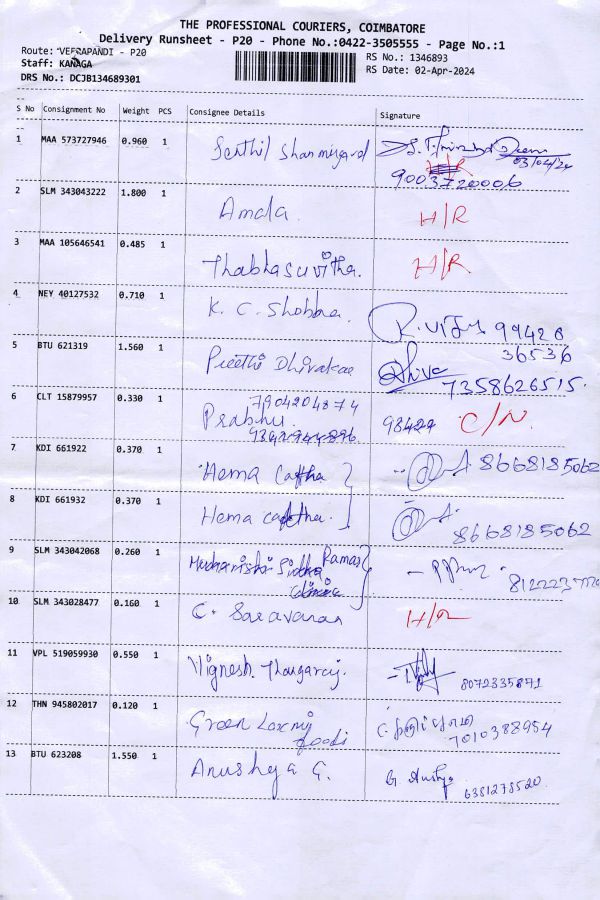 THE PROFESSIONAL COURIERS, COIMBATORE
Delivery Runsheet - P20 - Phone No.:0422-3505555 - Page No.:1
Route: VEERAPANDI - P20
Staff: KANAGA
DRS No.: DCJB134689301
RS No.: 1346893
RS Date: 02-Apr-2024
S No Consignment No Weight PCS Consignee Details Signature
1 MAA 573727946 0.960 1 Senthil Shanmugam
03/04/24
H/R
9003720006
2 SLM 343043222 1.800 1 Amala H/R
3 MAA 105646541 0.485 1 Thabhasuvitha. H/R
4 NEY 40127532 0.710 1 K. C. Shobha. 99420
36536
5 BTU 621319 1.560 1 Preethi Dhivakar Dhiva
7358626515.
6 CLT 15879957 0.330 1 7904204874
Prabhu. 98424 C/N
7 KDI 661922 0.370 1 Hema Latha 8668185062
8 KDI 661932 0.370 1 Hema Latha. 8668185062
9 SLM 343042068 0.260 1 Siddha Ramas
clinic
10 SLM 343028477 0.160 1 C. Saravanan H/R
11 VPL 519059930 0.550 1 Vignesh Thangaraj. 8072335871
12 THN 945802017 0.120 1 Green Laxmi
foodi 7010388954
13 BTU 623208 1.550 1 Anushya G. G. Anshya
6381278520.